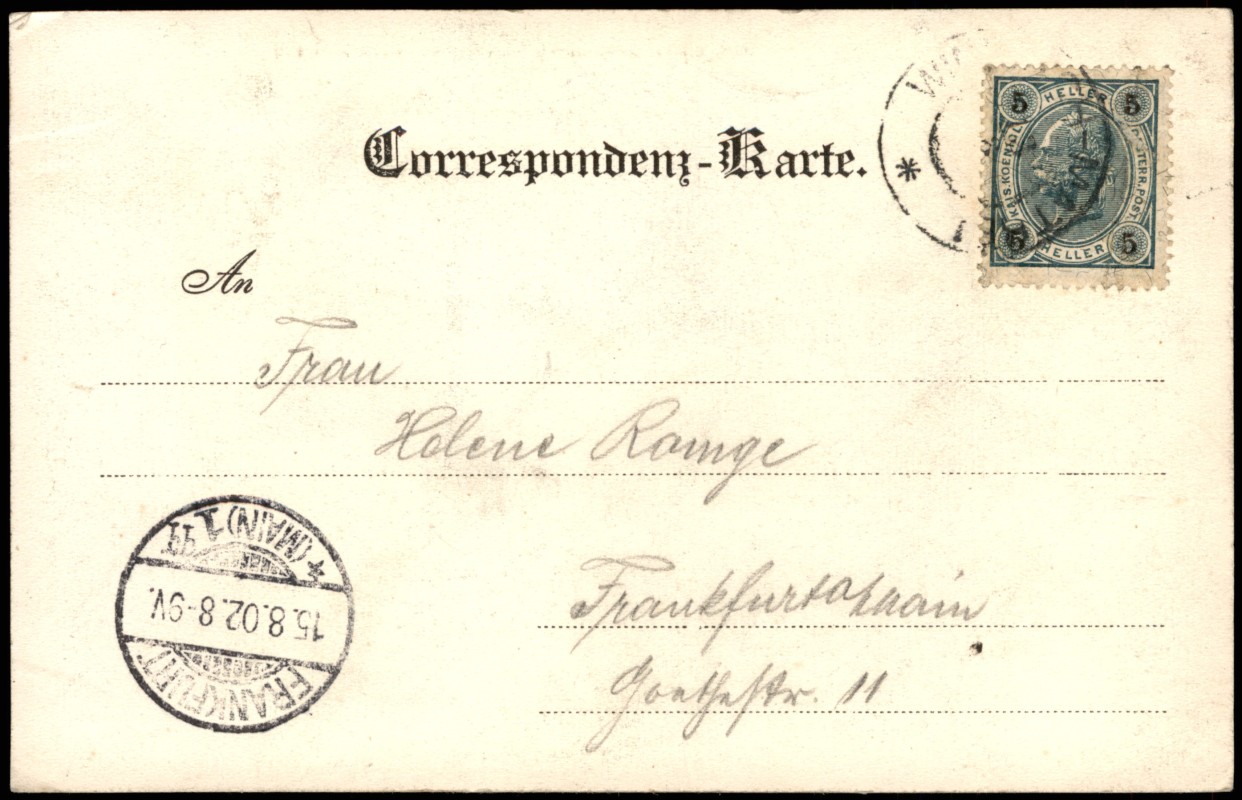 Correspondenz-Karte.
5 HELLER 5
KAIS. KOENIGL. OESTERR. POST.
5 HELLER 5
An
Frau
Helene Ramge
Frankfurt a/Main
Goethestr. 11
FRANKFURT
15.8.02. 8-9V.
* (MAIN) 1